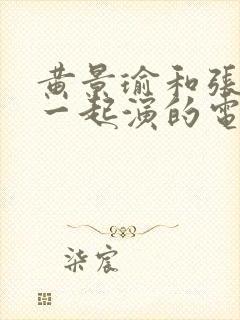 黄景瑜和張
一起演的電
柒宸